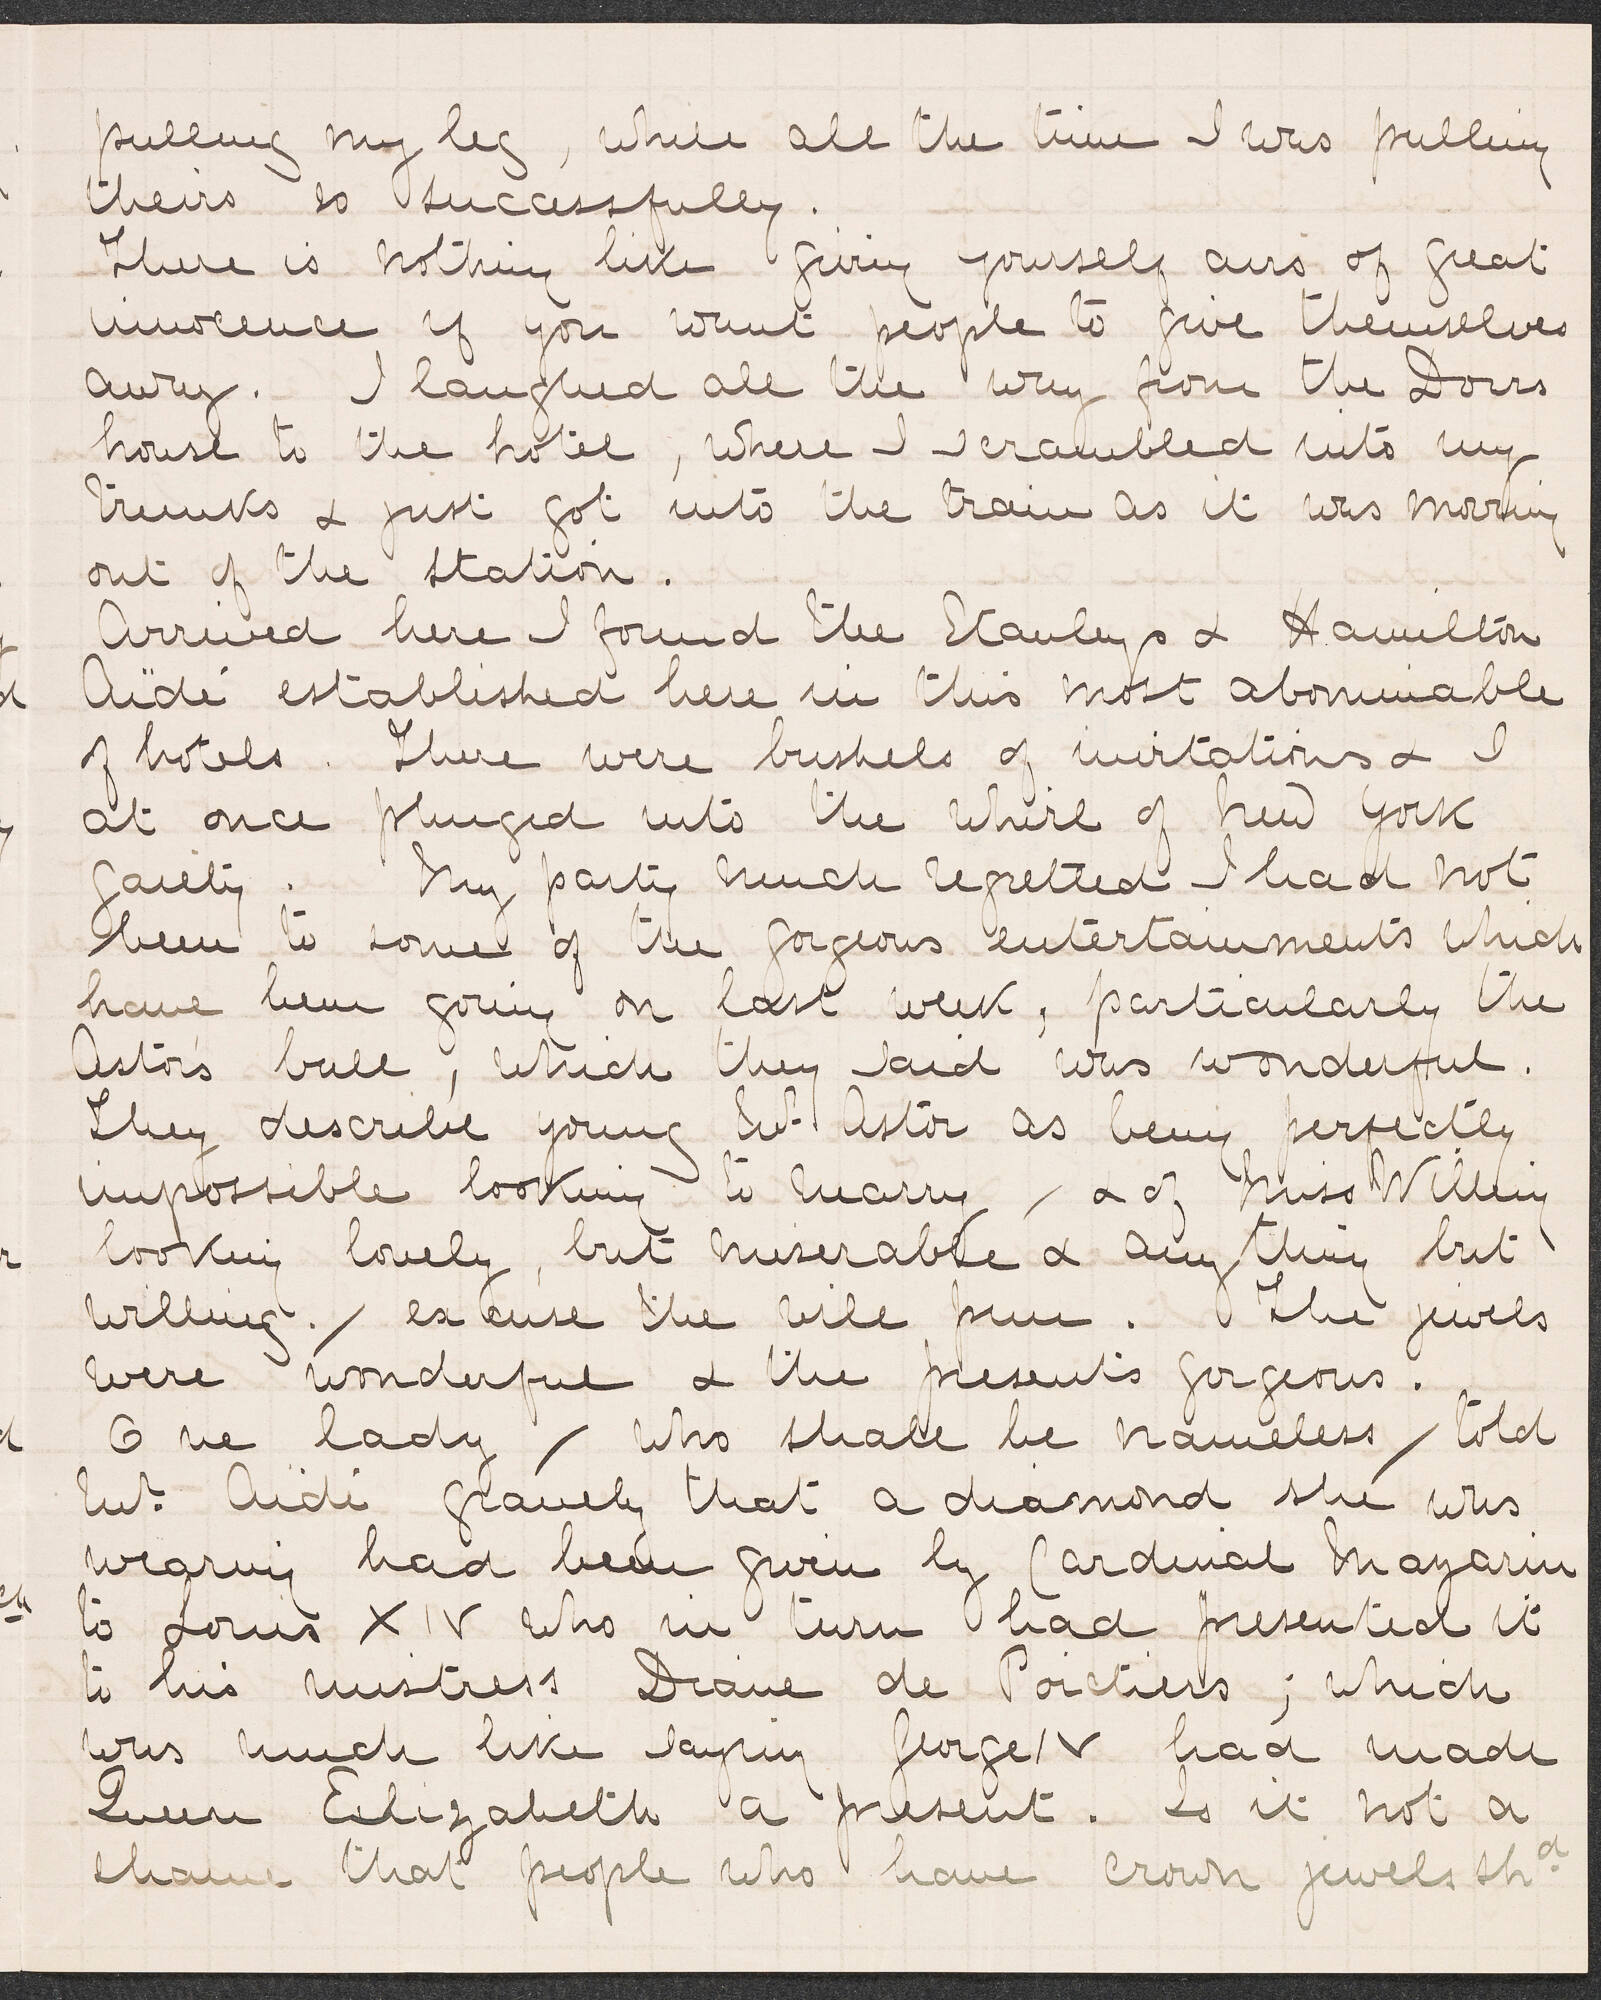 pulling my leg, while all the time I was pulling
theirs so successfully.
There is nothing like giving yourself airs of great
innocence if you want people to give themselves
away. I laughed all the way from the Dorrs
house to the hotel, where I scrambled into my
trunks & just got into the train as it was moving
out of the station.
Arrived here I found the Stanleys & Hamilton
Aïdé established here in this most abominable
of hotels. There were bushels of invitations & I
at once plunged into the whirl of New York
gaiety. My party much regretted I had not
been to some of the gorgeous entertainments which
have been going on last week, particularly the
Astor's ball, which they said was wonderful.
They describe young Mr. Astor as being perfectly
impossible looking to marry / & of Miss Willing
looking lovely, but miserable & anything but
willing. / excuse the vile pun. The jewels
were wonderful & the presents gorgeous.
One lady / who shall be nameless / told
Mr. Aïdé gravely that a diamond she was
wearing had been given by Cardinal Mazarin
to Louis XIV who in turn had presented it
to his mistress Diane de Poictiers; which
was much like saying George IV had made
Queen Elizabeth a present. Is it not a
shame that people who have crown jewels shd